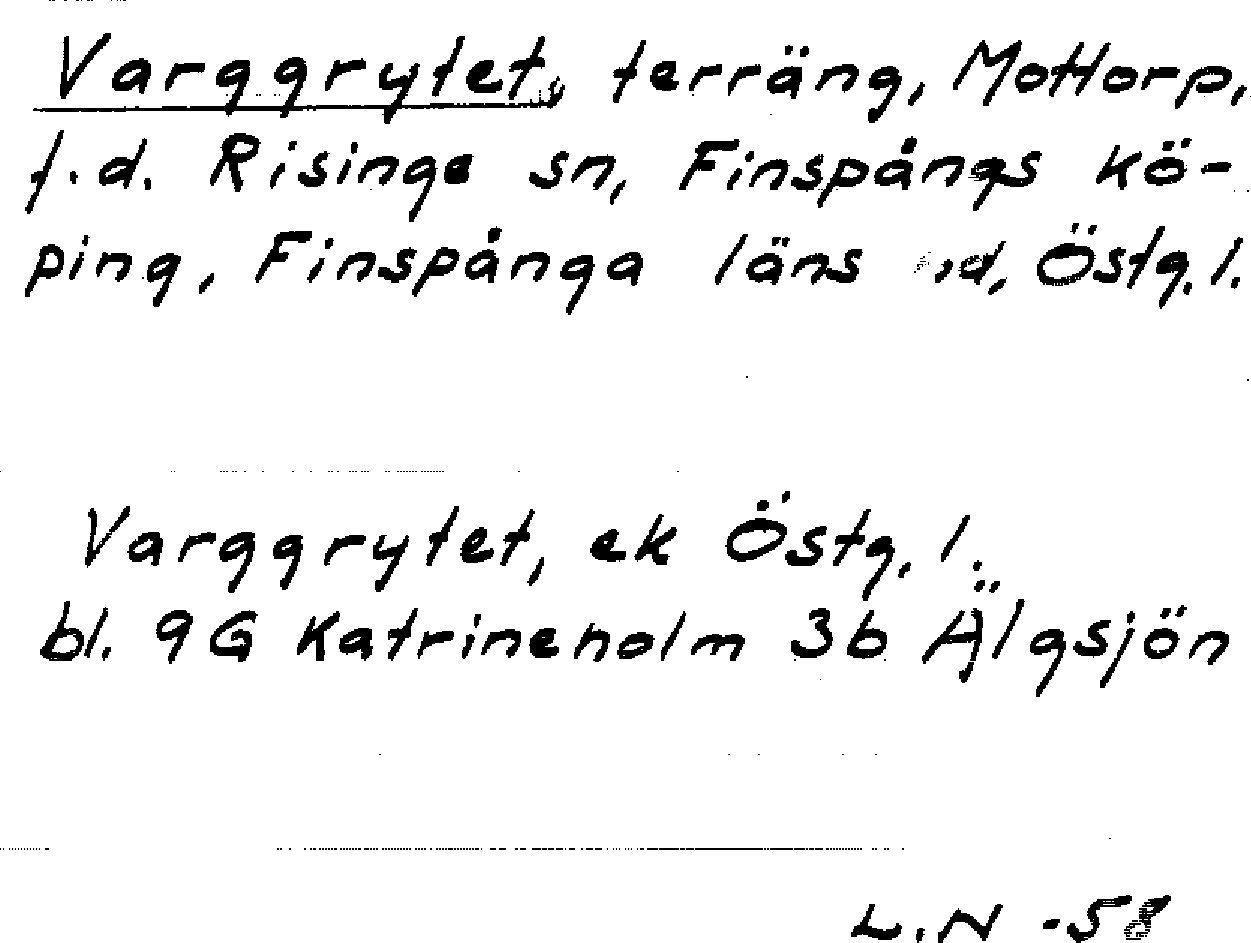 Varggrytet, terräng, Mottorp,
f.d. Risinge sn, Finspångs kö-
ping, Finspånga läns Östg.l.
Varggrytet, ek Östg.l.
bl. 9G Katrineholm 3b Älgsjön
L.N -58